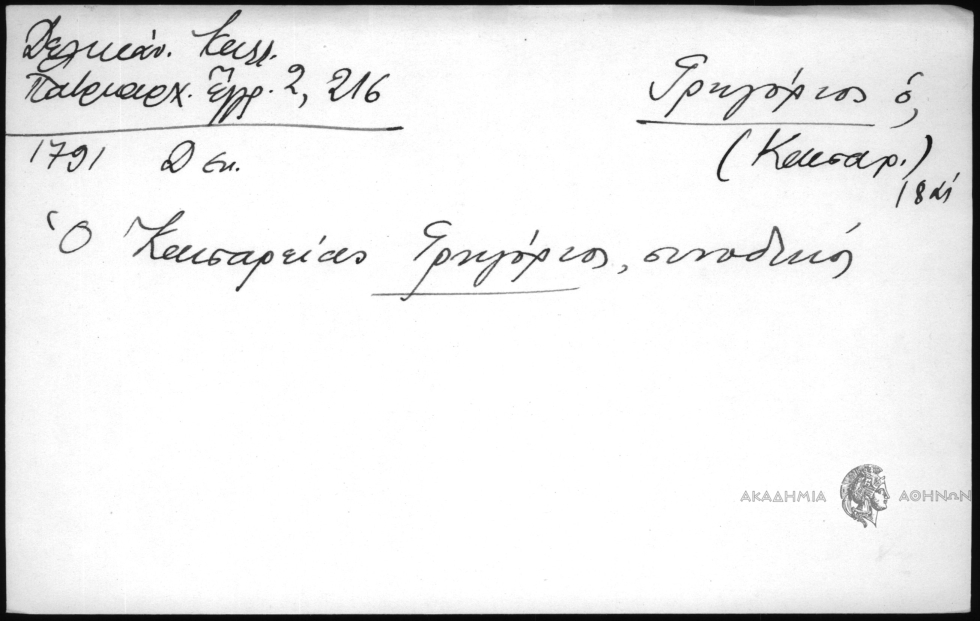 Δελικάν. Καλλ.
Πατριαρχ. Ἔγγρ. 2, 216
Γρηγόριος ὁ,
(Καισαρ.)
1791
18
Ὁ Καισαρείας Γρηγόριος, συνοδικός
ΑΚΑΔΗΜΙΑ ΑΘΗΝΩΝ